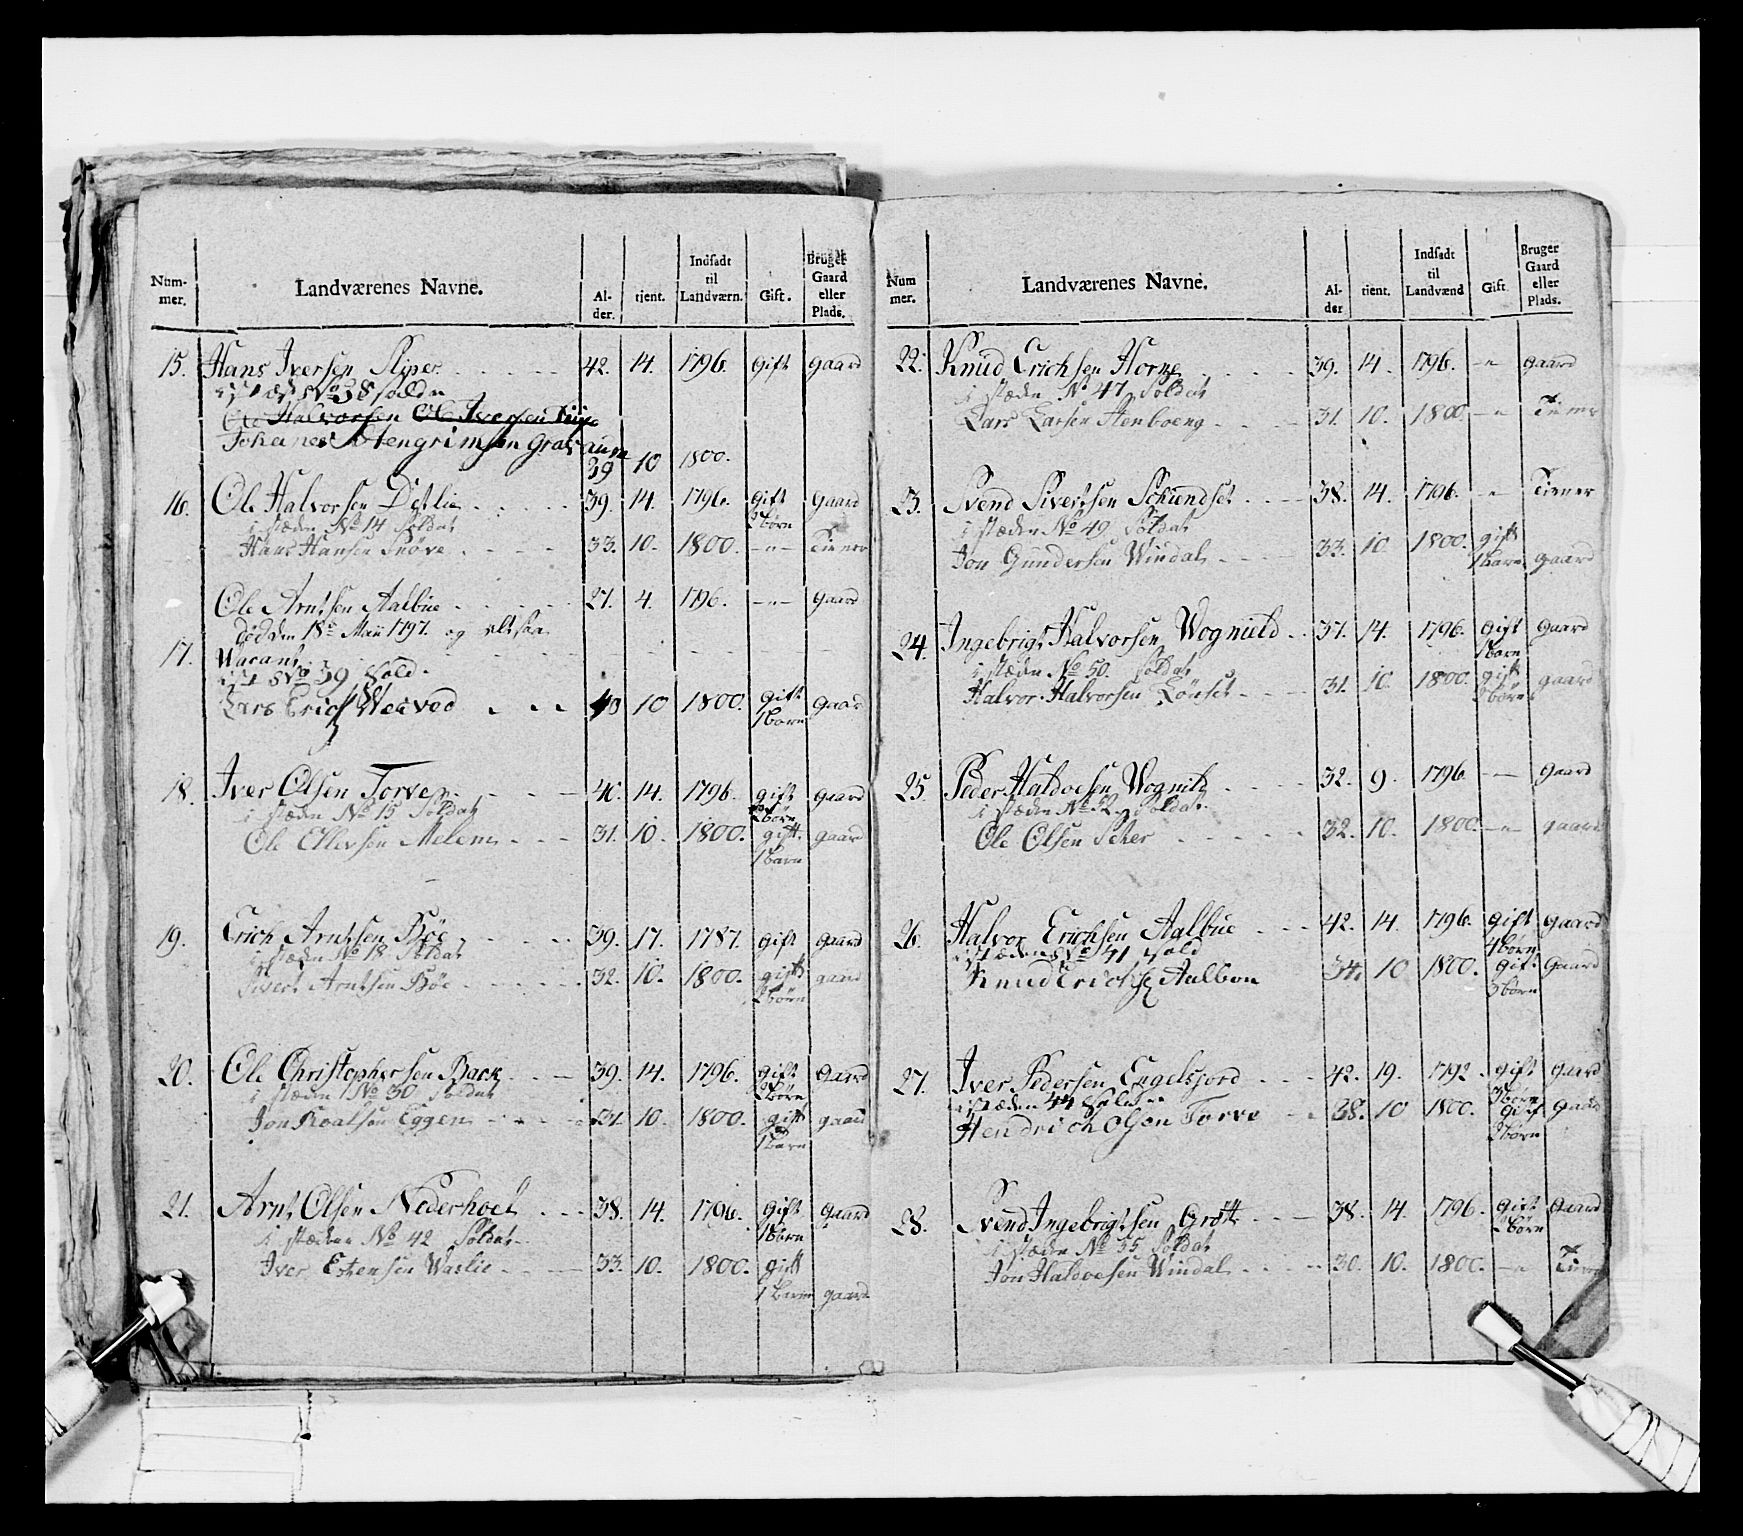 Num- mer. Landværenes Navne. Al- der. tient. Indsadt til Landværn. Gift. Bruger Gaard eller Plads.
15. Hans Iversen Sliper 42. 14. 1796. Gift Gaard
i stæd No 38 Soldn
Ole Halvorsen Ole Iversen
Johannes Stengrimsen Gravaune 39 10 1800.
16. Ole Halvorsen Detlie 39. 14. 1796. Gift Gaard
i stæden No 14 Soldat 2 børn
Hans Hansen Snöve 33. 10. 1800. - " - Tiener
Ole Arntsen Aalbue 27. 4. 1796. - " - Gaard
død den 18e Maii 1797. og altsaa
17. Wacant
i st No 39 Sold.
Lars Erichs Weaved 40 10 1800. Gift Gaard
1 barn
18. Iver Olsen Torven 40. 14. 1796. Gift Gaard
i stæden No 15 Soldat 2 börn
Ole Ellevsen Melem 31. 10. 1800. gift. gaard
1 barn
19. Erich Arntsen Böe 39. 17. 1787. Gift Gaard
i stæden No 18 Soldat
Sivert Arntsen Böe 32. 10. 1800. gift gaard
2 börn
20. Ole Christophersen Back 39. 14. 1796. Gift Gaard
i stæden No 30 Soldat 2 Börn
Jon Roalsen Eggen 31. 10. 1800. gift gaard
1 barn
21. Arnt Olsen Nederhoel 38. 14. 1796. Gift Gaard
i stæden No 42 Soldat 1 Barn
Iver Estensen Waslie 33. 10. 1800. gift
1 barn gaard
Num mer. Landværenes Navne. Al- der tient. Indsadt til Landvænd Gift Bruger Gaard eller Plads.
22. Knud Erichsen Horne 39. 14. 1796. - " - Gaard
i stæden No 47 Soldat
Lars Larsen Stenboeng 31. 10. 1800 - " Tiener
23. Svend Sivertsen Schundset 38. 14. 1796. - " - Tiener
i stæden No 49 Soldat
Jon Gundersen Windal 33. 10 1800. gift
1 barn gaard
24. Ingebrigt Halvorsen Wognield 37. 14. 1796. Gift Gaard
i stæden No 50. Soldat 1 barn
Halvor Halvorsen Lönset 31. 10. 1800. gift gaard
2 börn
25. Peder Haldoesen Wognild 32. 9. 1796. - - Gaard
i stæden No 52 Soldat.
Ole Olsen Seter 32. 10. 1800. - " - gaard
26. Halvor Erichsen Aalbue 42. 14. 1796. Gift Gaard
i stæden No 41 Sold 4 børn
Knud Erichs Aalbou 34. 10 1800. Gift Gaard
3 børn
27. Iver Pedersen Engelsjord 42. 19. 1792. Gift Gaard
i stæden 44 Soldat 3 børn
Hendrich Olsen Torve 38. 10 1800. Gift Gaard
2 børn
28. Svend Ingebrigtsen Grött 38. 14. 1796. Gift Gaard
i stæden No 55 Soldat 2 børn
Jon Haldoesen Windal 30. 10. 1800. - " Tiener